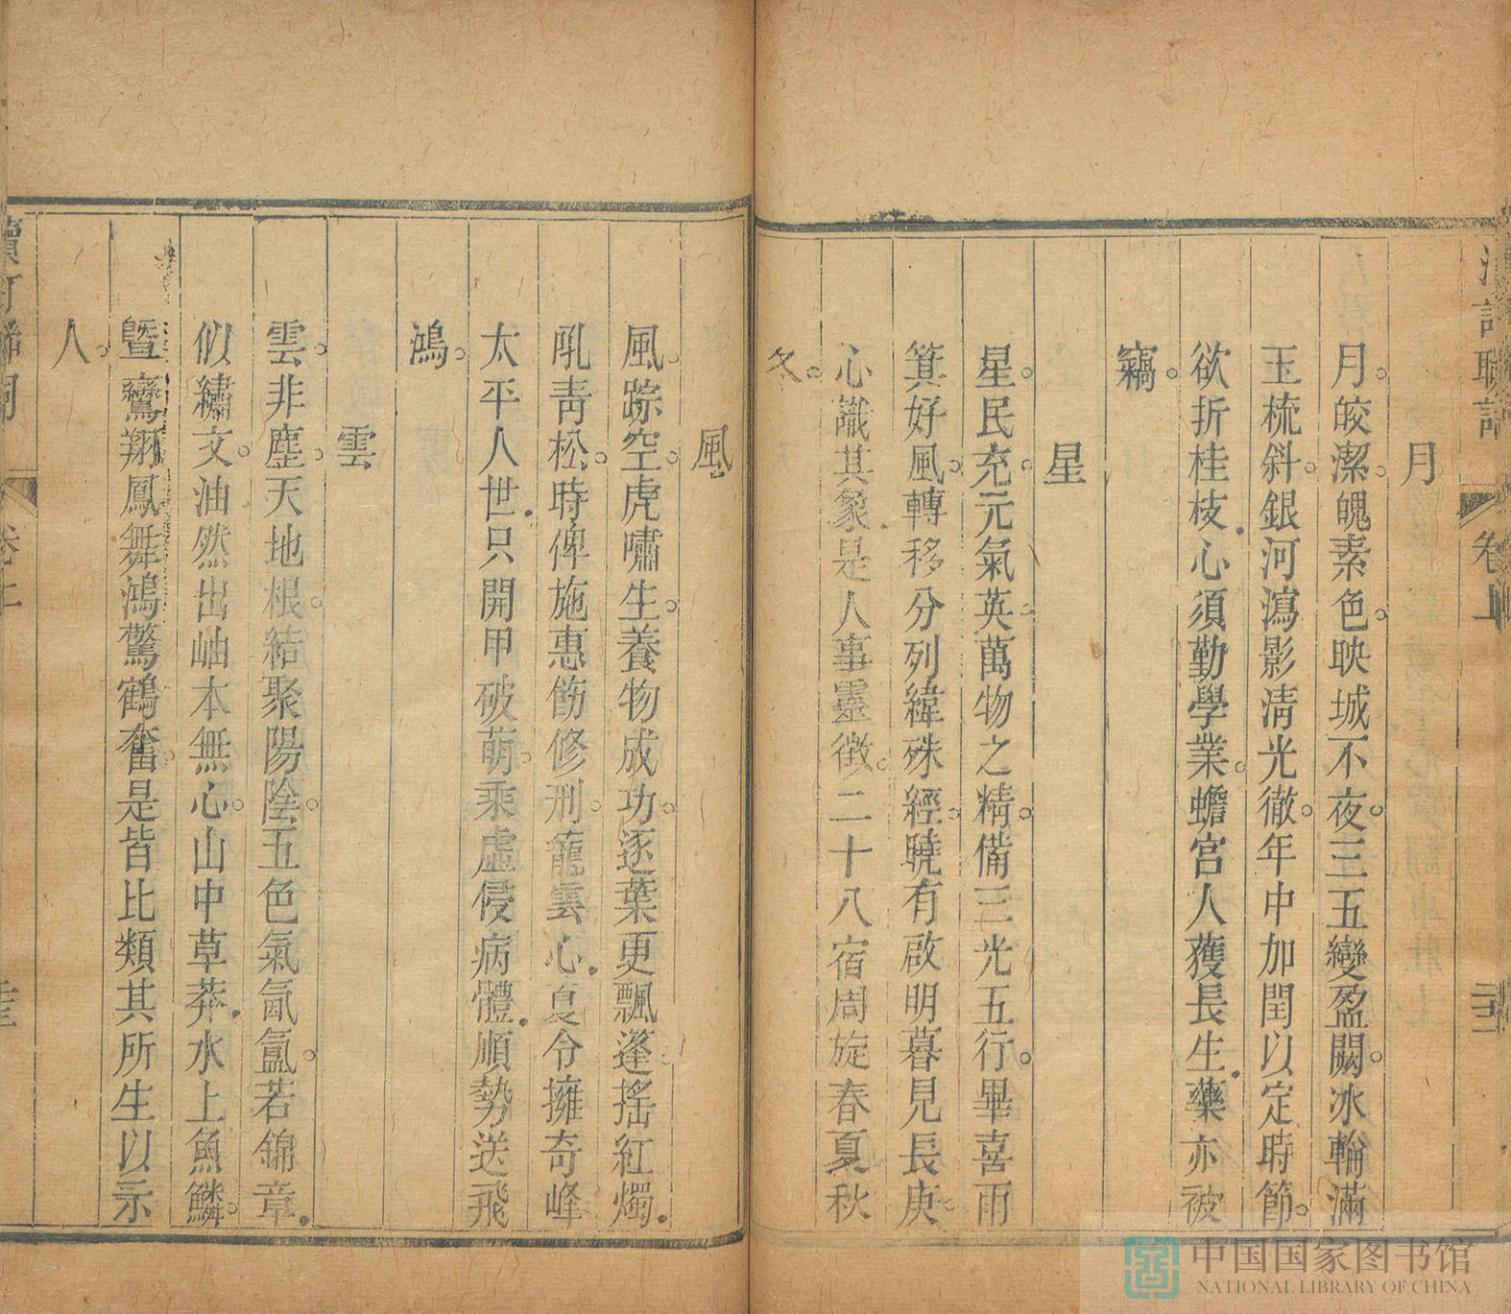 月
月。皎潔。魄素色。映城不夜。三五變盈闕。冰輪滿
玉梳斜。銀河瀉影淸光徹。年中加閏以定時節。
欲折桂枝.心須勤學業。蟾宫人獲長生.藥亦被
竊。
星
星。民充。元氣英。萬物之精。備三光五行。畢喜雨
箕好風。轉移分列緯硃經。曉有啟明暮見長庚。
心識其象.是人事靈徴。二十八宿周旋春夏秋
冬。
卷上
風
風。踪空。虎嘯生。養物成功。逐葉更飄蓬。搖紅燭.
吼靑松。時俾施惠飭修刑。籠雲心.夏令擁奇峰
太平人世.只開甲破萌。乘虛侵病體.順勢送飛
鴻。
雲
雲。非塵。天地根。結聚陽陰。五色氣氤氳。若錦章.
似繡文。油然出岫本無心。山中草莽.水上魚鱗。
曁鸞翔鳳舞鴻驚鶴奮。是皆比類其所生以示
人。
中国国家图书馆
NATIONAL LIBRARY OF CHINA